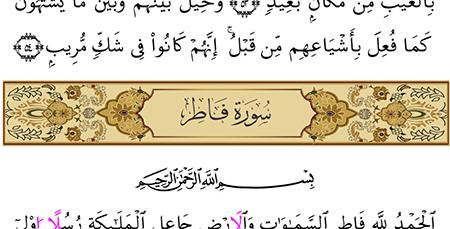 بِالْغَيْبِ مِن مَّكَانٍ بَعِيدٍ ﴿٥٣﴾ وَحِيلَ بَيْنَهُمْ وَبَيْنَ مَا يَشْتَهُونَ
كَمَا فُعِلَ بِأَشْيَاعِهِم مِّن قَبْلُ ۚ إِنَّهُمْ كَانُوا۟ فِى شَكٍّ مُّرِيبٍ ﴿٥٤﴾
سُورَة فَاطِر
بِسْمِ ٱللَّهِ ٱلرَّحْمَٰنِ ٱلرَّحِيمِ
ٱلْحَمْدُ لِلَّهِ فَاطِرِ ٱلسَّمَٰوَٰتِ وَٱلْأَرْضِ جَاعِلِ ٱلْمَلَٰٓئِكَةِ رُسُلًا